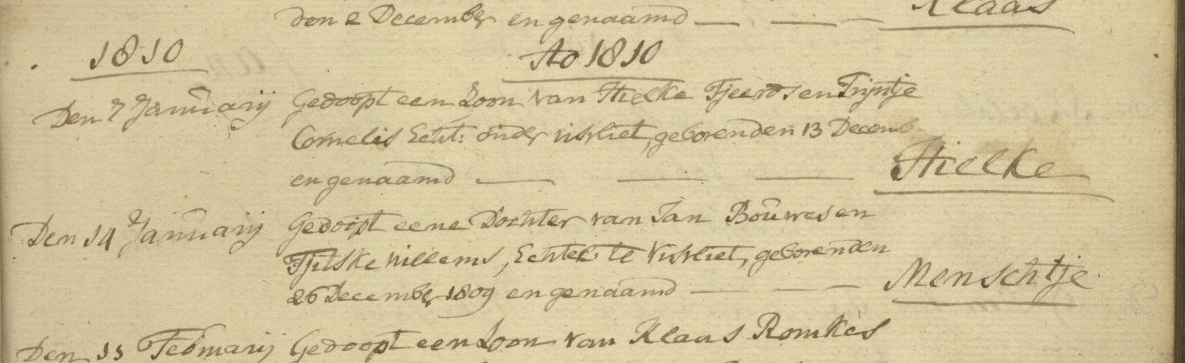 den 2 December en genaamd — — — Klaas
1810 Ao 1810
Den 7 Januarij Gedoopt een Zoon van Hielke Tjeerds en Trijntje
Cornelis Echt: onder visvliet, geboren den 13 Decemb.
en genaamd — — — Hielke
Den 14 Januarij Gedoopt eene Dochter van Jan Bouwes en
Tjitske Willems, Echtel: te Visvliet, geboren den
26 December 1809 en genaamd — — Menschtje
Den Februarij Gedoopt een Zoon van Klaas Romkes